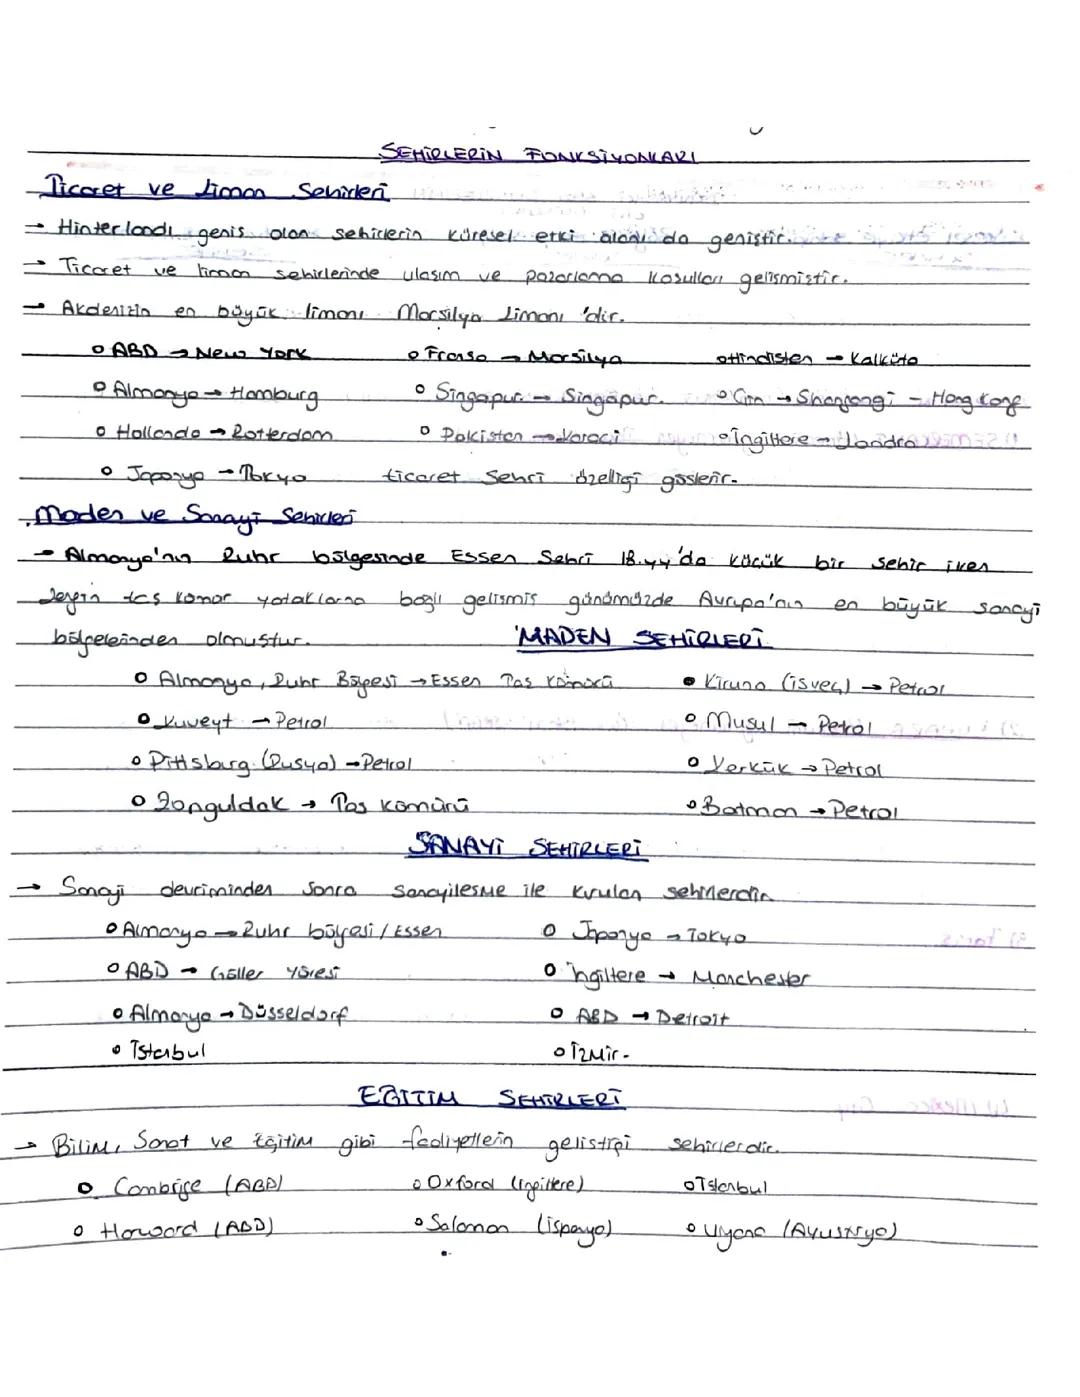 ŞEHİRLERİN FONKSİYONLARI
Ticaret ve Liman Şehirleri
→ Hinterlandı geniş olan şehirlerin küresel etki alanı da geniştir.
→ Ticaret ve liman şehirlerinde ulaşım ve pazarlama koşulları gelişmiştir.
→ Akdenizin en büyük limanı Marsilya Limanı 'dır.
o ABD → New York o Fransa → Marsilya o Hindistan → Kalküta
o Almanya → Hamburg o Singapur → Singapur. o Çin → Shangangi - Hong Kong
o Hollanda → Rotterdam o Pakistan → Karaçi o İngiltere → Londra
o Japonya → Tokyo ticaret şehri özelliği gösterir.
Maden ve Sanayi Şehirleri
→ Almanya'nın Ruhr bölgesinde Essen Şehri 18.yy'da küçük bir şehir iken
zengin taş kömür yataklarına bağlı gelişmiş günümüzde Avrupa'nın en büyük sanayi
bölgelerinden olmuştur. MADEN ŞEHİRLERİ
o Almanya, Ruhr Bölgesi → Essen Taş Kömürü • Kiruna (isveç) → Petrol
o Kuveyt → Petrol o Musul → Petrol
o Pittsburg (Rusya) → Petrol o Kerkük → Petrol
o Zonguldak → Taş kömürü o Batman → Petrol
SANAYİ ŞEHİRLERİ
→ Sanayi devriminden sonra sanayileşme ile kurulan şehirlerdir.
o Almanya → Ruhr bölgesi / Essen o Japonya → Tokyo
o ABD → Göller Yöresi o İngiltere → Manchester
o Almanya → Düsseldorf o ABD → Detroit
• İstanbul o İzmir.
EĞİTİM ŞEHİRLERİ
→ Bilim, Sanat ve Eğitim gibi faaliyetlerin geliştiği şehirlerdir.
o Cambrige (ABD) o Oxford (ingiltere) o İstanbul
o Harward (ABD) o Salaman (ispanya) o Viyana (Avusturya)